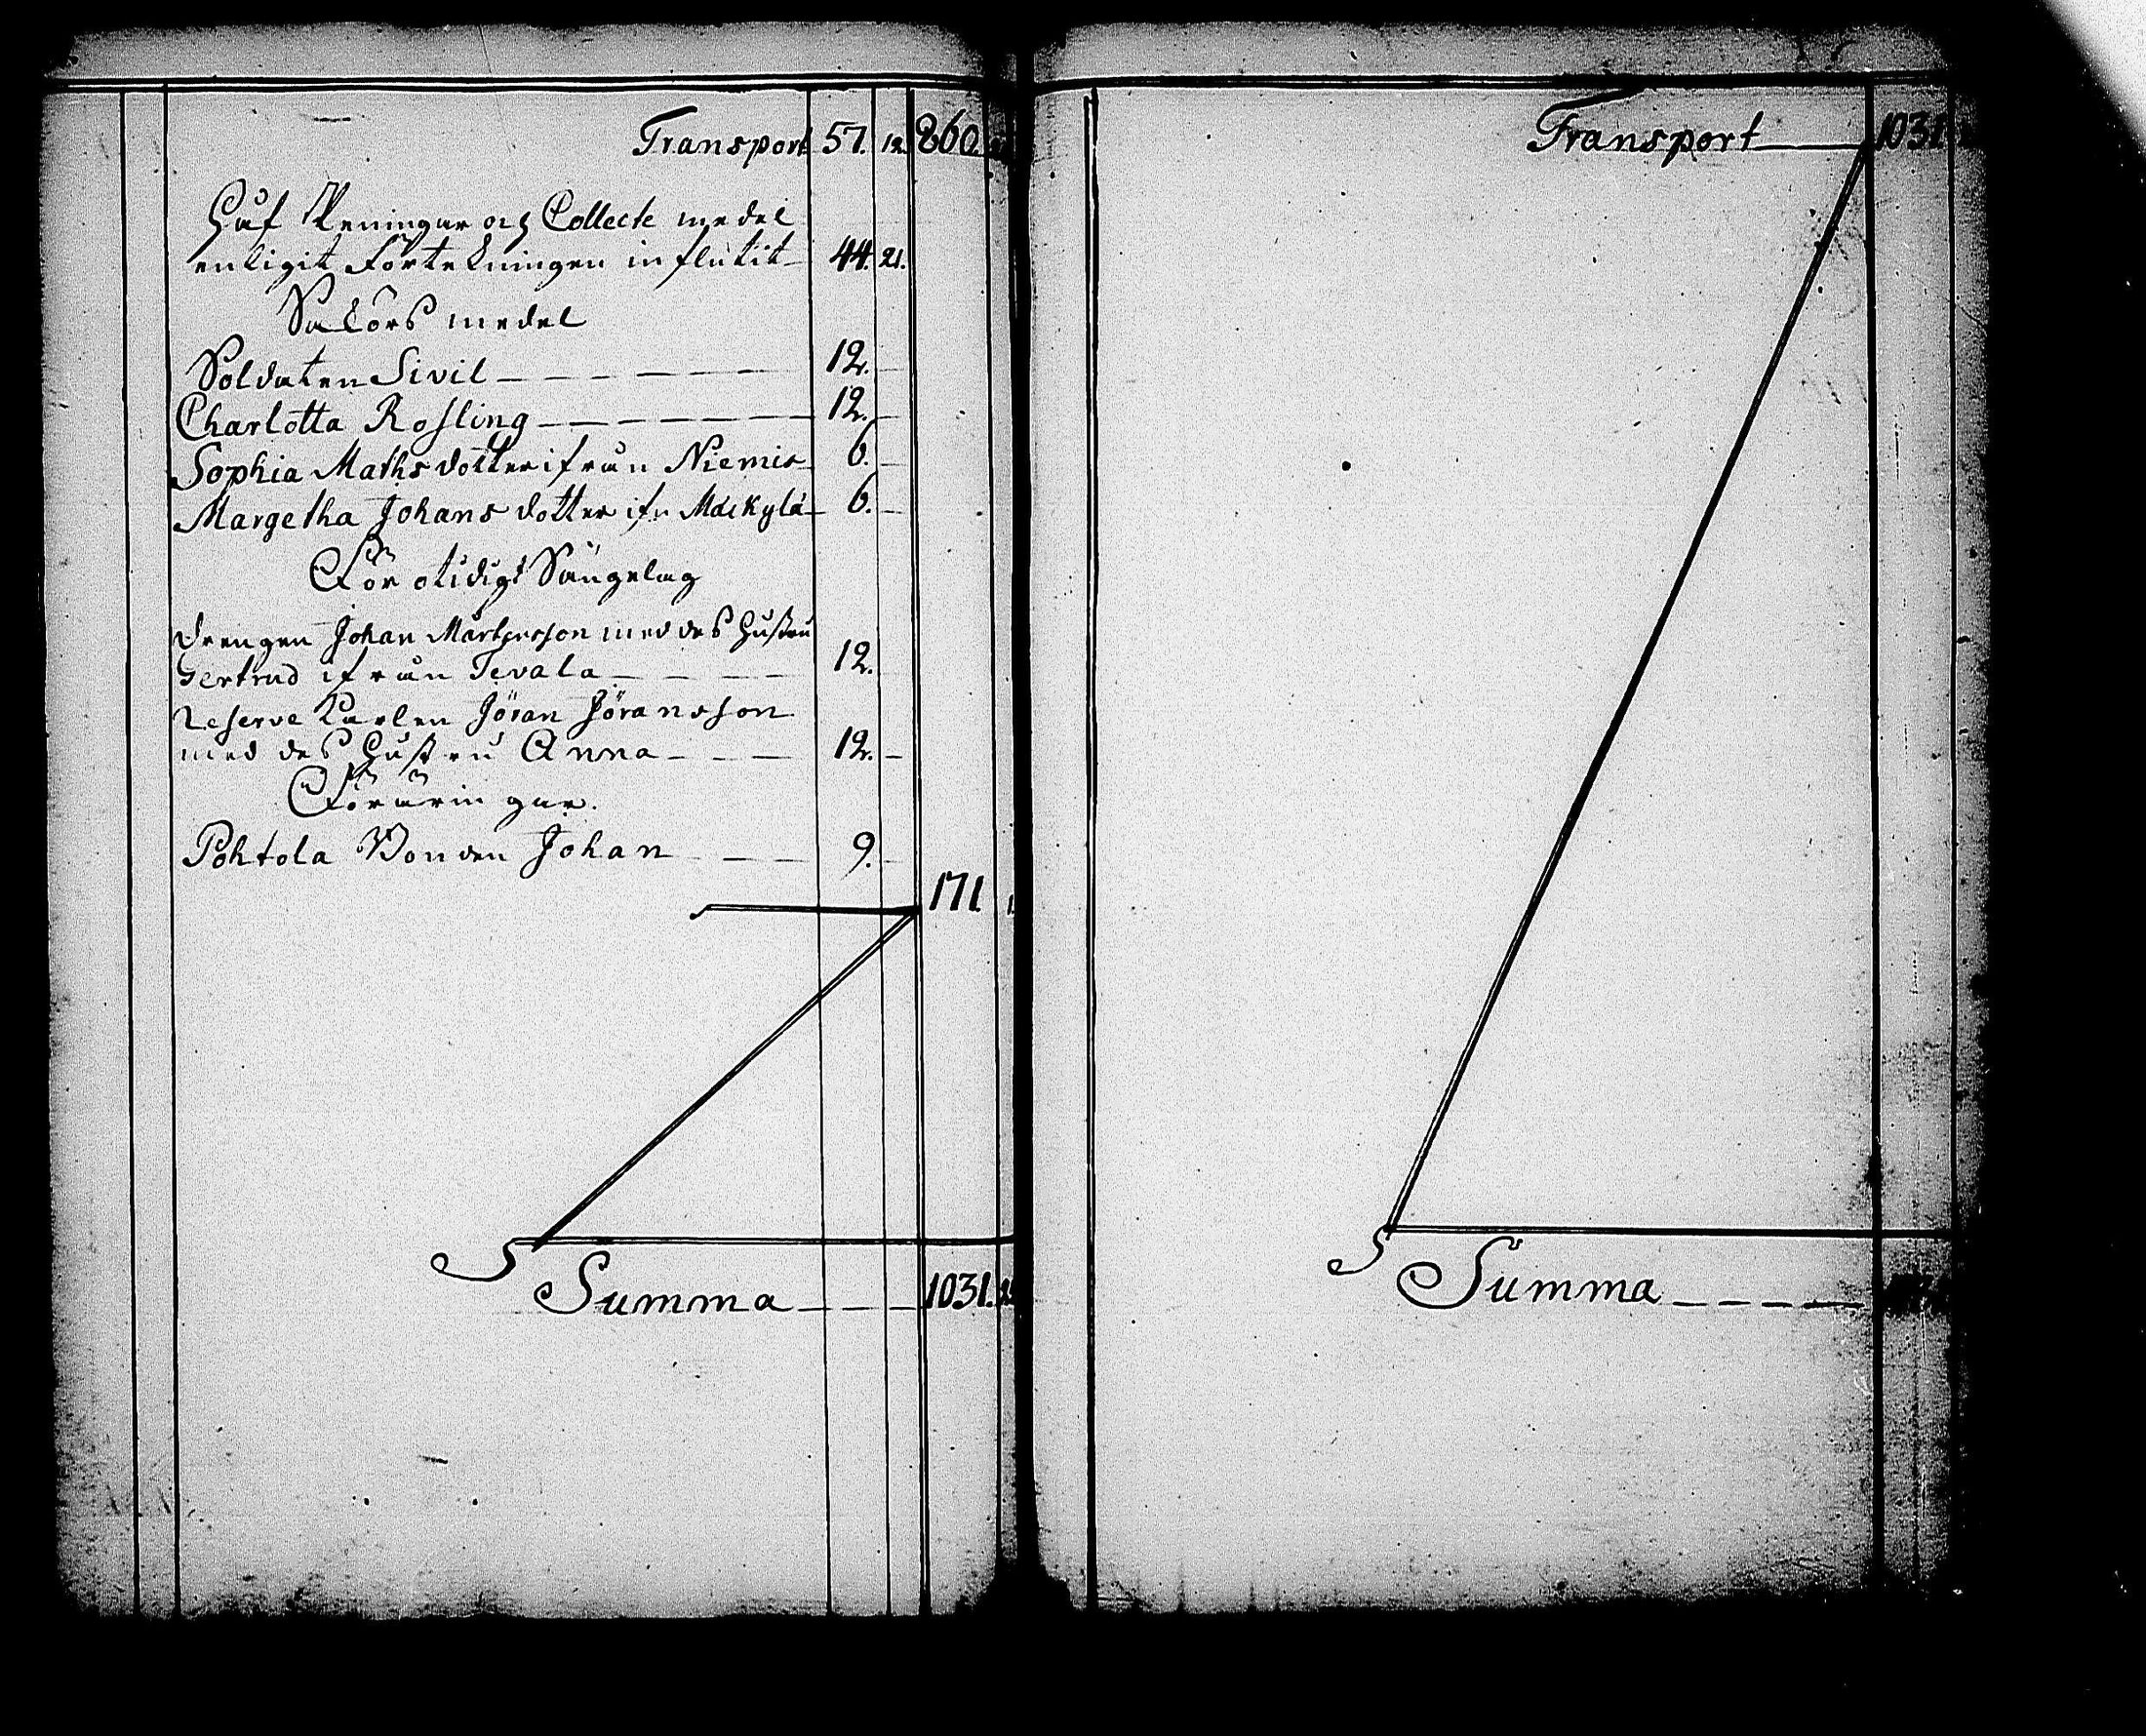 Transport 57. 12. 860.
Håf Peningar och Collecte medel
enligit Förtekningen influtit 44. 21.
Saköres medel
Soldaten Sivil 12. -
Charlotta Rosling 12. -
Sophia Mathsdotter ifrån Niemis 6. -
Margetha Johans dotter ifr. Mäckylä 6. -
För otidigt Sängelag
Drengen Johan Mårtensson med des Hustru
Gertrud ifrån Tevala 12.
Reserve Karlen Jöran Jöransson
med des Hustru Anna 12. -
Föräringar.
Pohtola Bonden Johan 9. -
171
Summa 1031.
Transport 1031
Summa